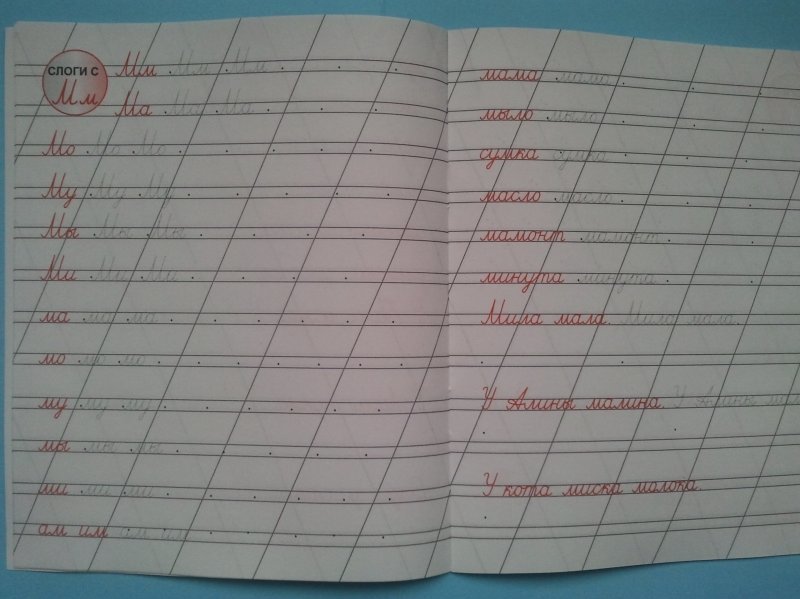 СЛОГИ С
Мм
Мм Мм Мм
Ма Ма Ма
Мо Мо Мо
Му Му Му
Мы Мы Мы
Ми Ми Ми
ма ма ма
мо мо мо
му му му
мы мы мы
ми ми ми
ам им ам им
мама мама
мыло мыло
сумка сумка
масло масло
мамонт мамонт
минута минута
Мила мала. Мила мала.
У Амины малина. У Амины
У кота миска молока.